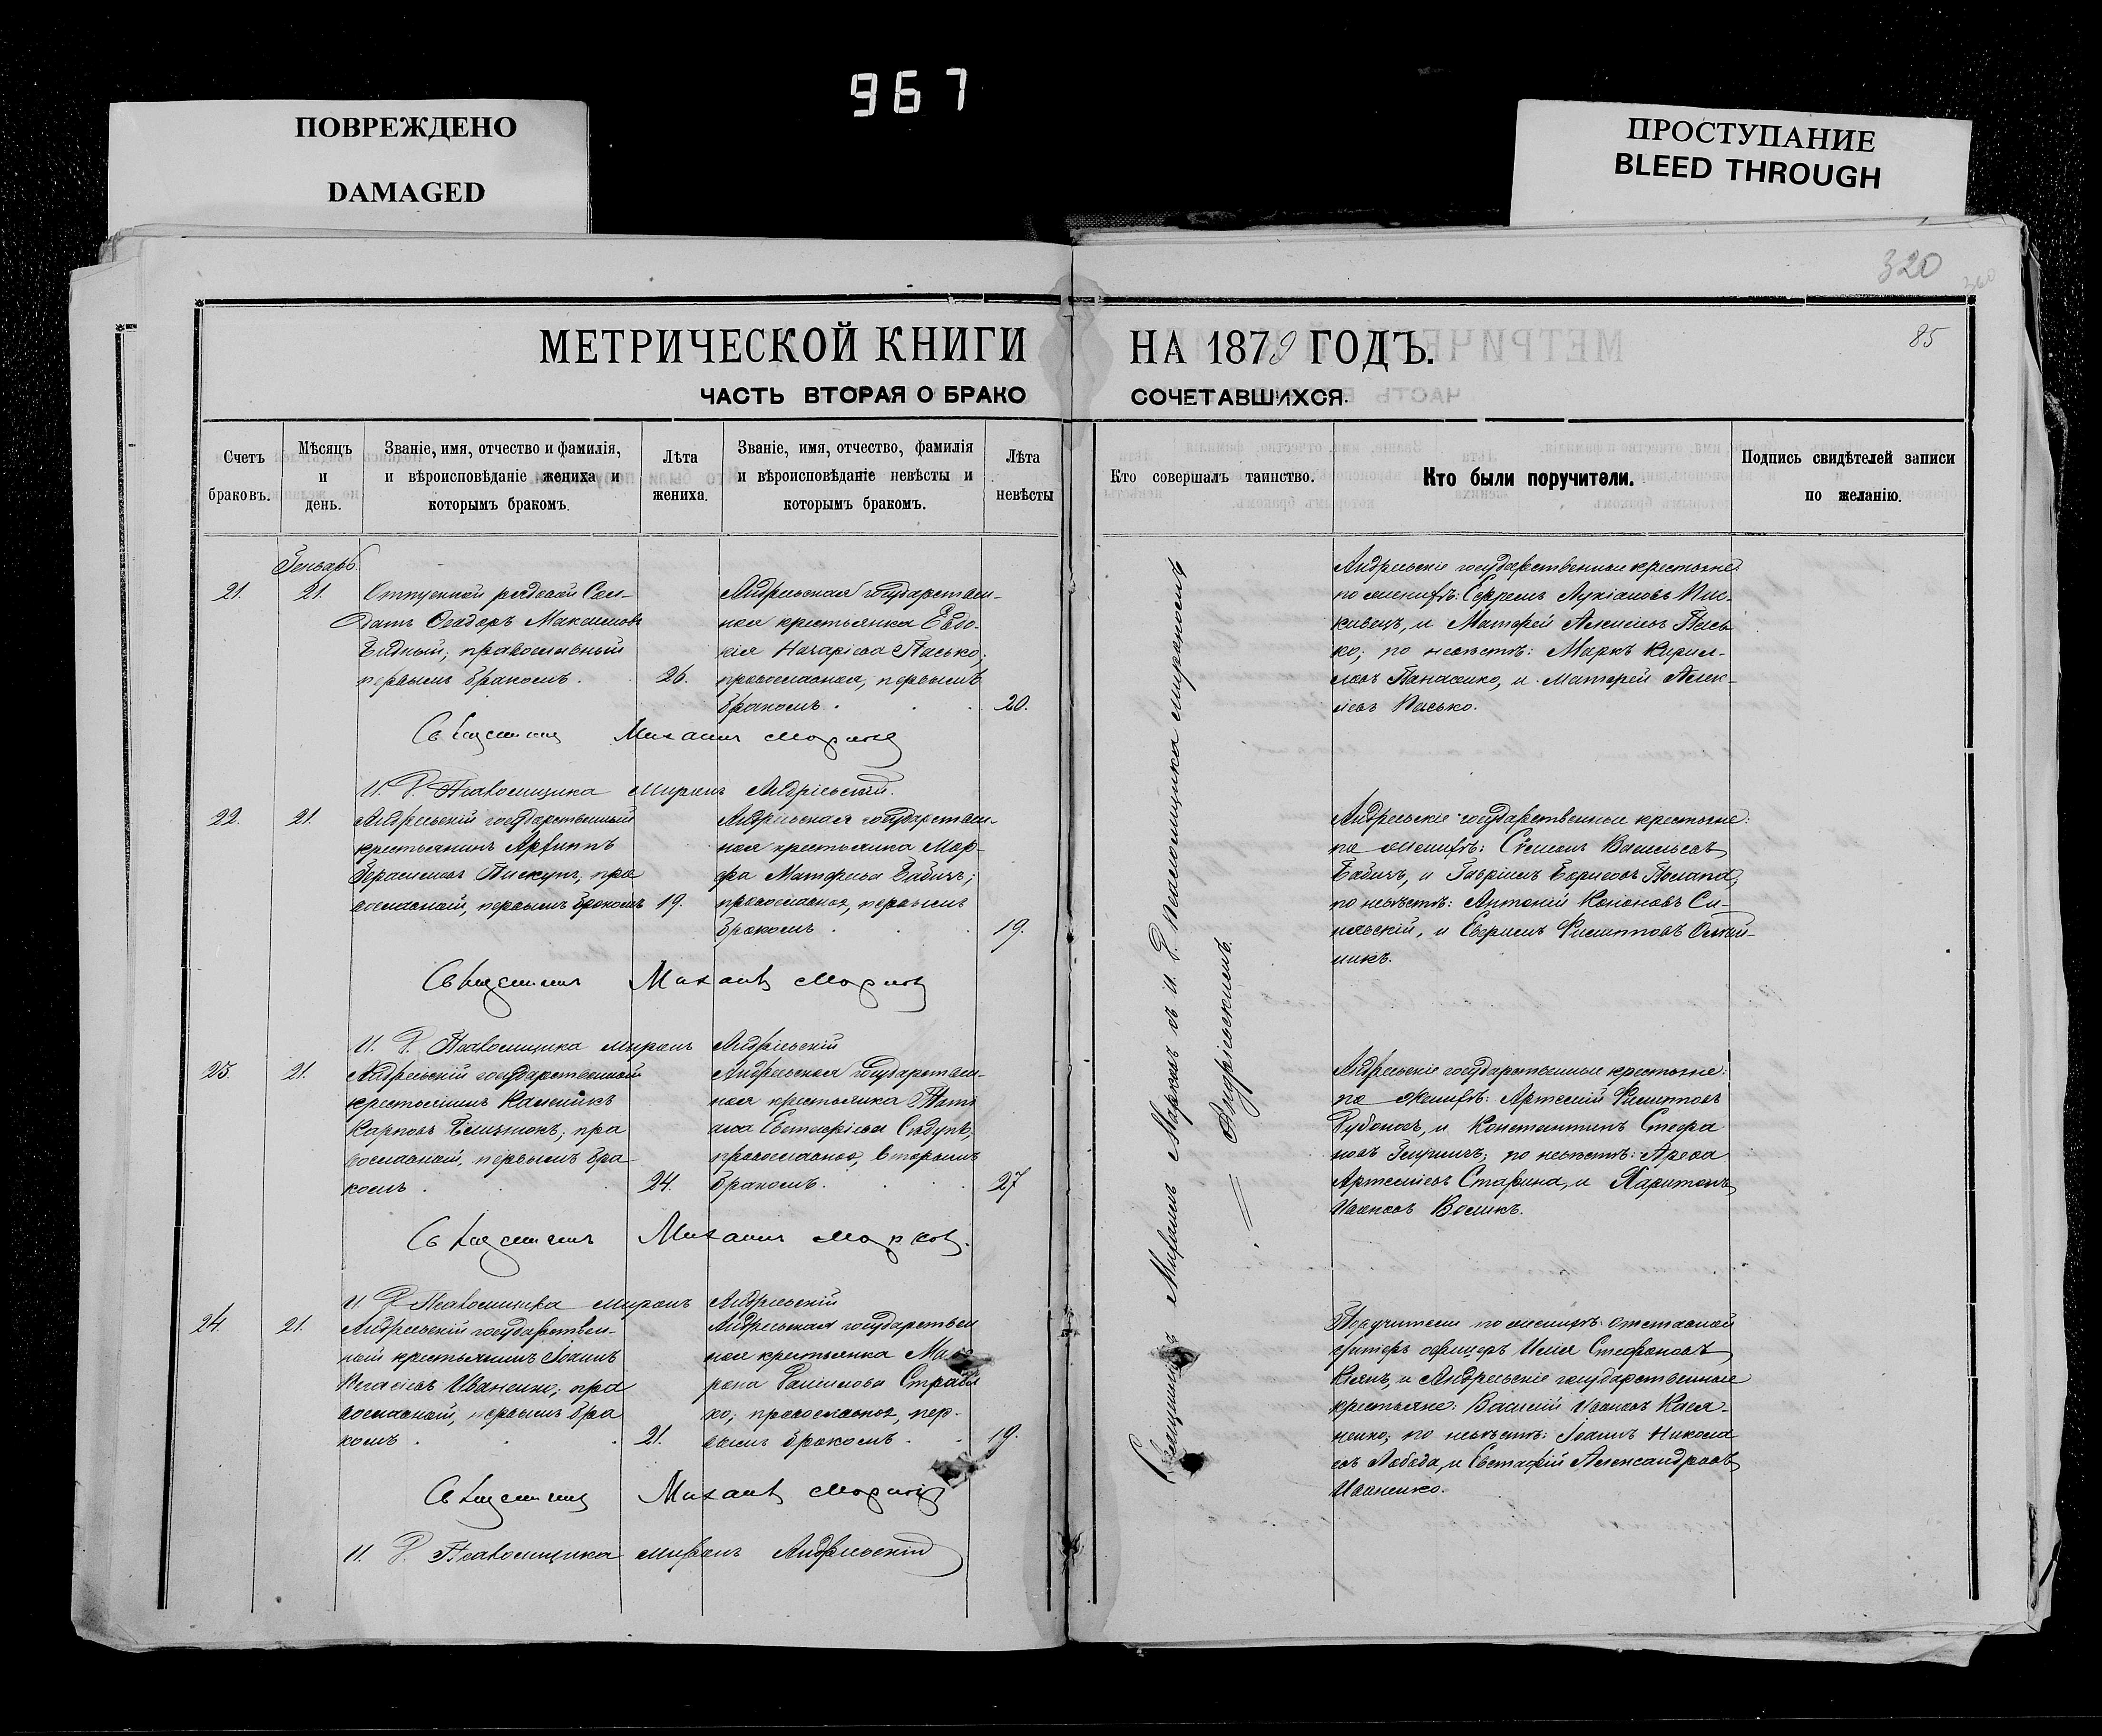 967
ПОВРЕЖДЕНО
DAMAGED
ПРОСТУПАНИЕ
BLEED THROUGH
320
85
МЕТРИЧЕСКОЙ КНИГИ НА 1879 ГОДЪ.
ЧАСТЬ ВТОРАЯ О БРАКО СОЧЕТАВШИХСЯ.
Счетъ
браковъ.
Мѣсяцъ
и
день.
Званіе, имя, отчество и фамилія,
и вѣроисповѣданіе жениха и
которымъ бракомъ.
Лѣта
жениха.
Званіе, имя, отчество, фамилія
и вѣроисповѣданіе невѣсты и
которымъ бракомъ.
Лѣта
невѣсты
Кто совершалъ таинство.
Кто были поручители.
Подпись свидѣтелей записи
по желанію.
Генварь.
21.
21.
Отпускной рядовой Сол-
датъ Ѳеодоръ Максимовъ
Бѣдный; православный
первымъ бракомъ.
26.
Андреевская государствен-
ная крестьянка Евдо-
кія Назаріева Пасько;
православная, первымъ
бракомъ.
20.
Андреевскіе государственные крестьяне
по женихѣ: Ефремъ Лукіановъ
и Матфей Алексіевъ Пась
ко; по невѣстѣ: Маркъ Кирил-
ловъ Панасенко, и Матфей Алек-
сіевъ Пасько.
Священникъ Михаилъ Марковъ
И. Д. Псаломщика Миронъ Андріевскій.
22.
21.
Андреевскій государственный
крестьянинъ Архиппъ
Герасимовъ Пискунъ, пра
вославный, первымъ бракомъ
19.
Андреевская государствен-
ная крестьянка Мар-
фа Матфеева Бабичъ;
православная, первымъ
бракомъ.
19.
Андреевскіе государственные крестьяне:
по женихѣ: Симеонъ Васильевъ
Бабичъ, и Гавріилъ Борисовъ
по невѣстѣ: Антоній Кононовъ Си-
и Филипповъ Олей-
никъ.
Священникъ Михаилъ Марковъ
И. Д. Псаломщика Миронъ Андріевскій
23.
21.
Андреевскій государственный
крестьянинъ Калиникъ
Карповъ пра
вославный, первымъ бра-
комъ.
24.
Андреевская государствен-
ная крестьянка Тать
яна Евстафіева
православная, вторымъ
бракомъ.
27
Андреевскіе государственные крестьяне:
по женихѣ: Артемій Филипповъ
и Константинъ Стефа
новъ по невѣстѣ:
Артеміевъ и Харитонъ
Ивановъ Воликъ.
Священникъ Михаилъ Марковъ.
И. Д. Псаломщика Миронъ Андріевскій
24.
21.
Андреевскій государствен-
ный крестьянинъ Іоаннъ
Власіевъ Иваненко; пра
вославный, первымъ бра
комъ.
21.
Андреевская государствен
ная крестьянка
Даніилова
ко; православная, пер-
вымъ бракомъ.
19.
Поручители по женихѣ: отставной
унтеръ офицеръ Илія Стефановъ
и Андреевскіе государственные
крестьяне: Василій Ивановъ Кася-
ненко; по невѣстѣ: Іоаннъ Никола
евъ Лобода, и Евстафій Александровъ
Иваненко.
Священникъ Михаилъ Марковъ
И. Д. Псаломщика Миронъ Андріевскій
Священникъ Михаилъ Марковъ съ И. Д. Псаломщика Мирономъ
Андріевскимъ.